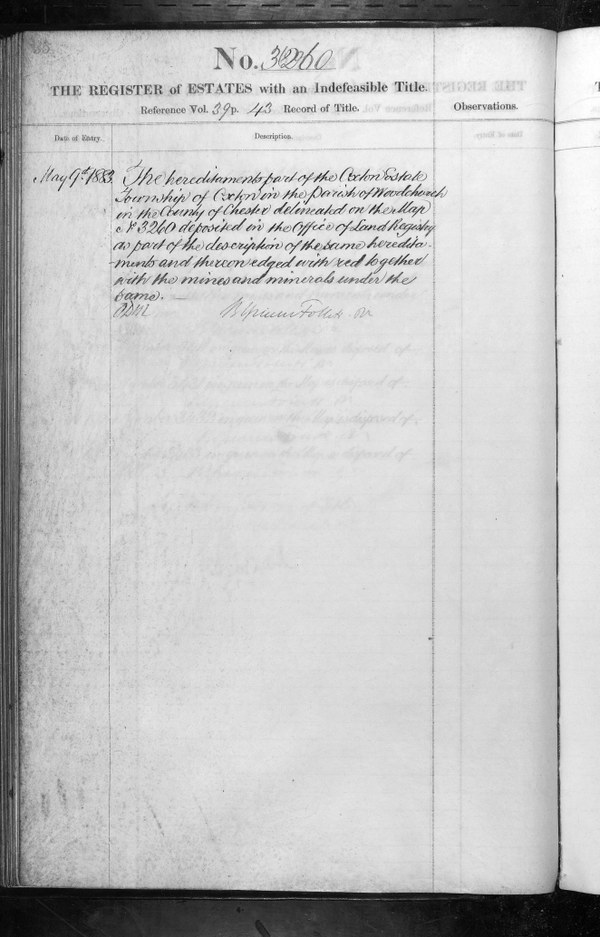 No. 3260
THE REGISTER of ESTATES with an Indefeasible Title.
Reference Vol. 39 p. 43 Record of Title.
Observations.
Date of Entry.
Description.
May 9th 1883. The hereditaments part of the Oxton Estate
Township of Oxton in the Parish of Woodchurch
in the County of Chester delineated on the Map
No 3260 deposited in the Office of Land Registry
as part of the description of the same heredita-
-ments and thereon edged with red together
with the mines and minerals under the
same.